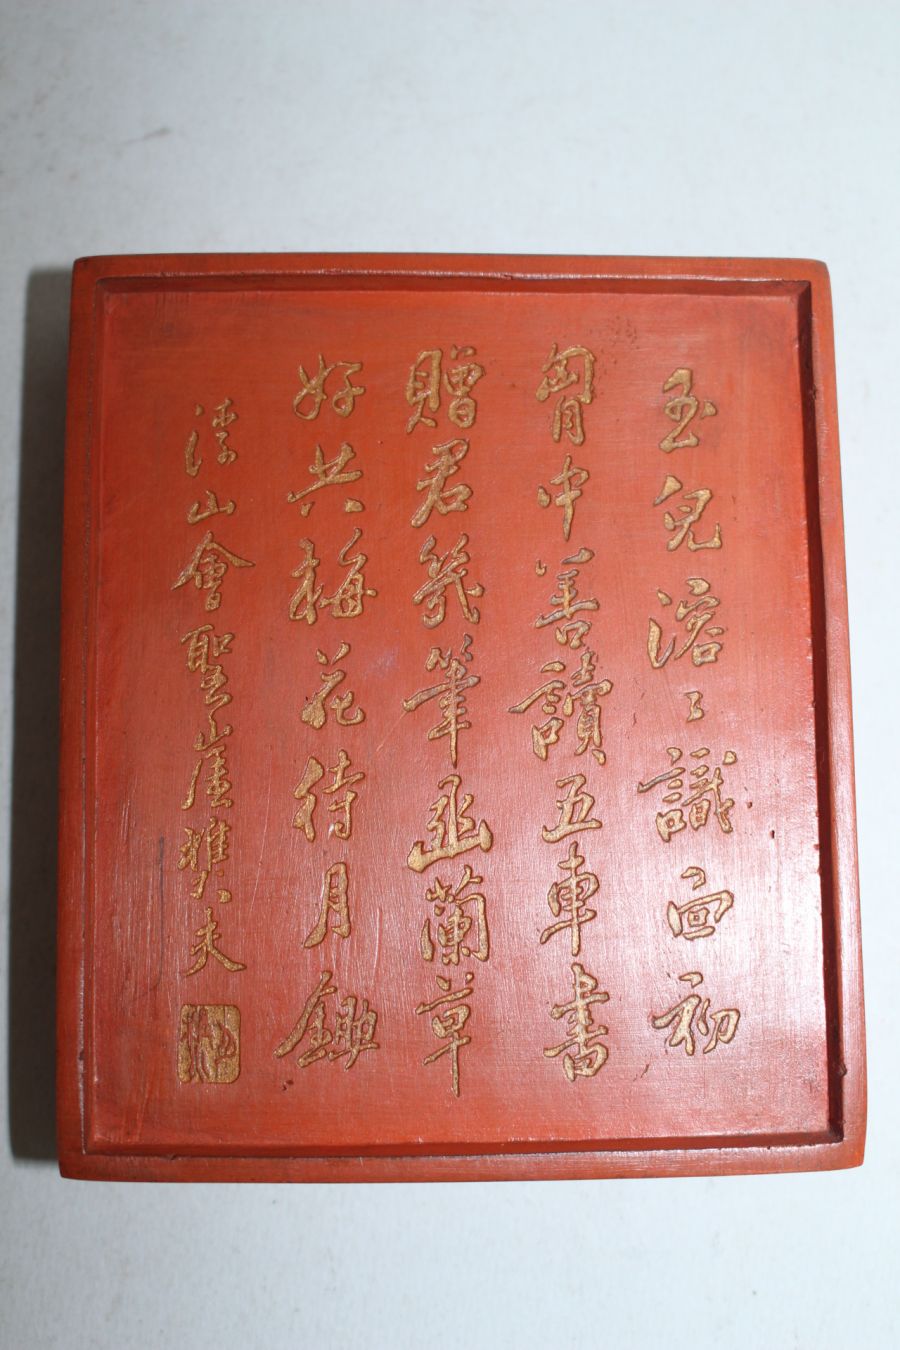 玉兒溶〻識面初
胷中善讀五車書
贈君幾筆幽蘭草
好共梅花待月鋤
溪山會聖崖樵夫